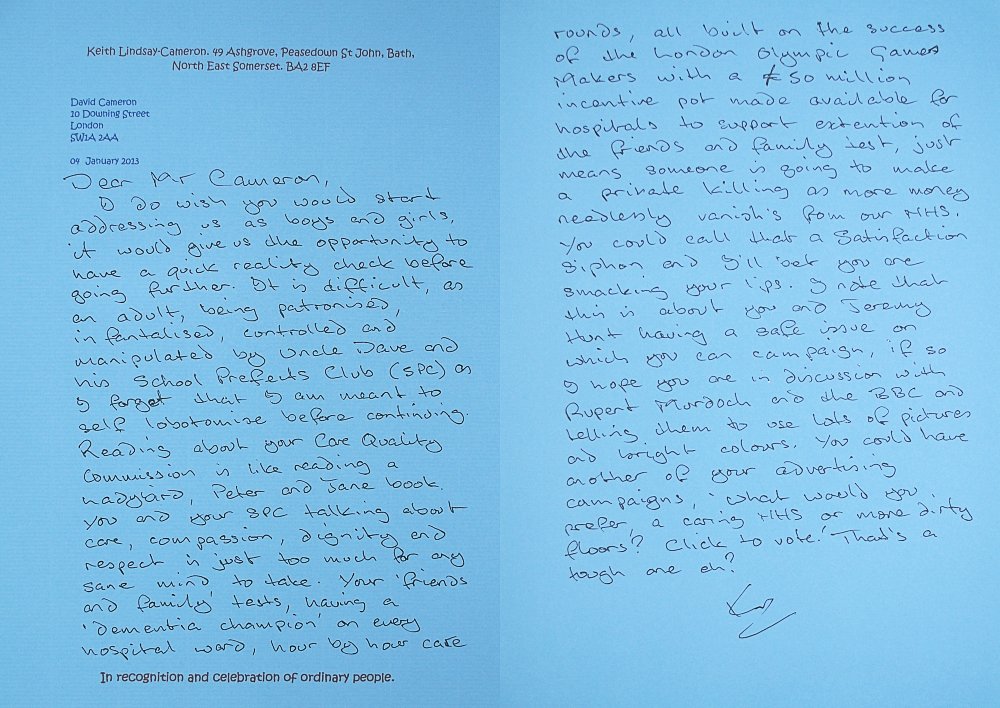 Keith Lindsay-Cameron. 49 Ashgrove, Peasedown St John, Bath,
North East Somerset. BA2 8EF
David Cameron
10 Downing Street
London
SW1A 2AA
04 January 2013
Dear Mr Cameron,
I do wish you would start
addressing us as boys and girls,
it would give us the opportunity to
have a quick reality check before
going further. It is difficult, as
an adult, being patronised,
infantalised, controlled and
manipulated by Uncle Dave and
his School Prefects Club (SPC) as
I forget that I am meant to
self lobotomise before continuing.
Reading about your Care Quality
Commission is like reading a
ladybird, Peter and Jane book.
You and your SPC talking about
care, compassion, dignity and
respect is just too much for any
sane mind to take. Your 'friends
and family' tests, having a
'dementia champion' on every
hospital ward, hour by hour care
In recognition and celebration of ordinary people.
rounds, all built on the success
of the London Olympic Games
Makers with a £50 million
incentive pot made available for
hospitals to support extention of
the friends and family test, just
means someone is going to make
a private killing as more money
needlessly vanish's from our NHS.
You could call that a Satisfaction
Siphon and I'll bet you are
smacking your lips. I note that
this is about you and Jeremy
Hunt having a safe issue on
which you can campaign, if so
I hope you are in discussion with
Rupert Murdoch and the BBC and
telling them to use lots of pictures
and bright colours. You could have
another of your advertising
campaigns, 'what would you
prefer, a caring NHS or more dirty
floors? Click to vote.' That's a
tough one eh?